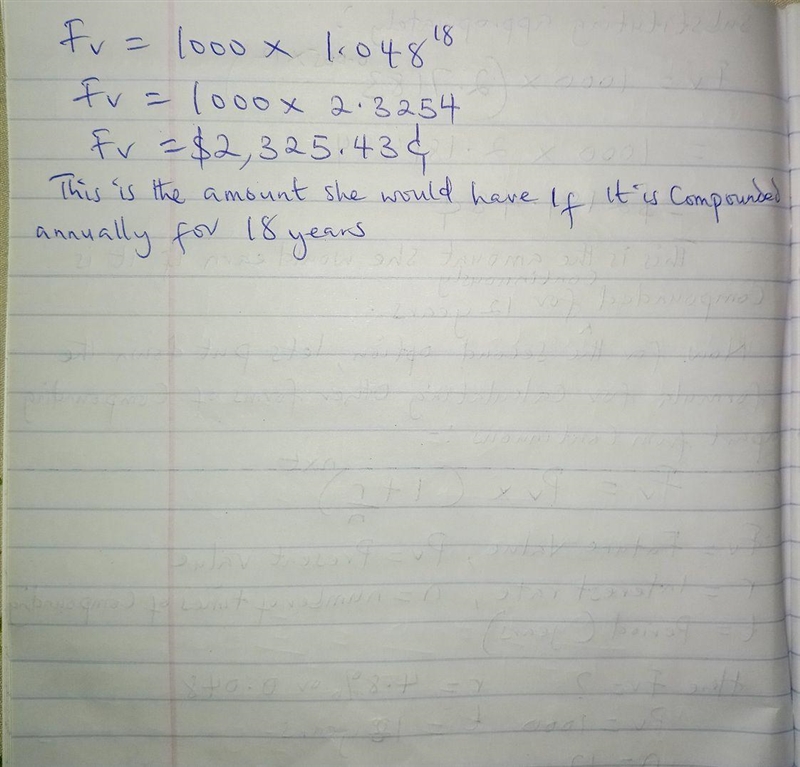 Fv = 1000 x 1.048^18
Fv = 1000 x 2.3254
Fv = $2,325.43¢
This is the amount she would have If It is Compounded
annually for 18 years